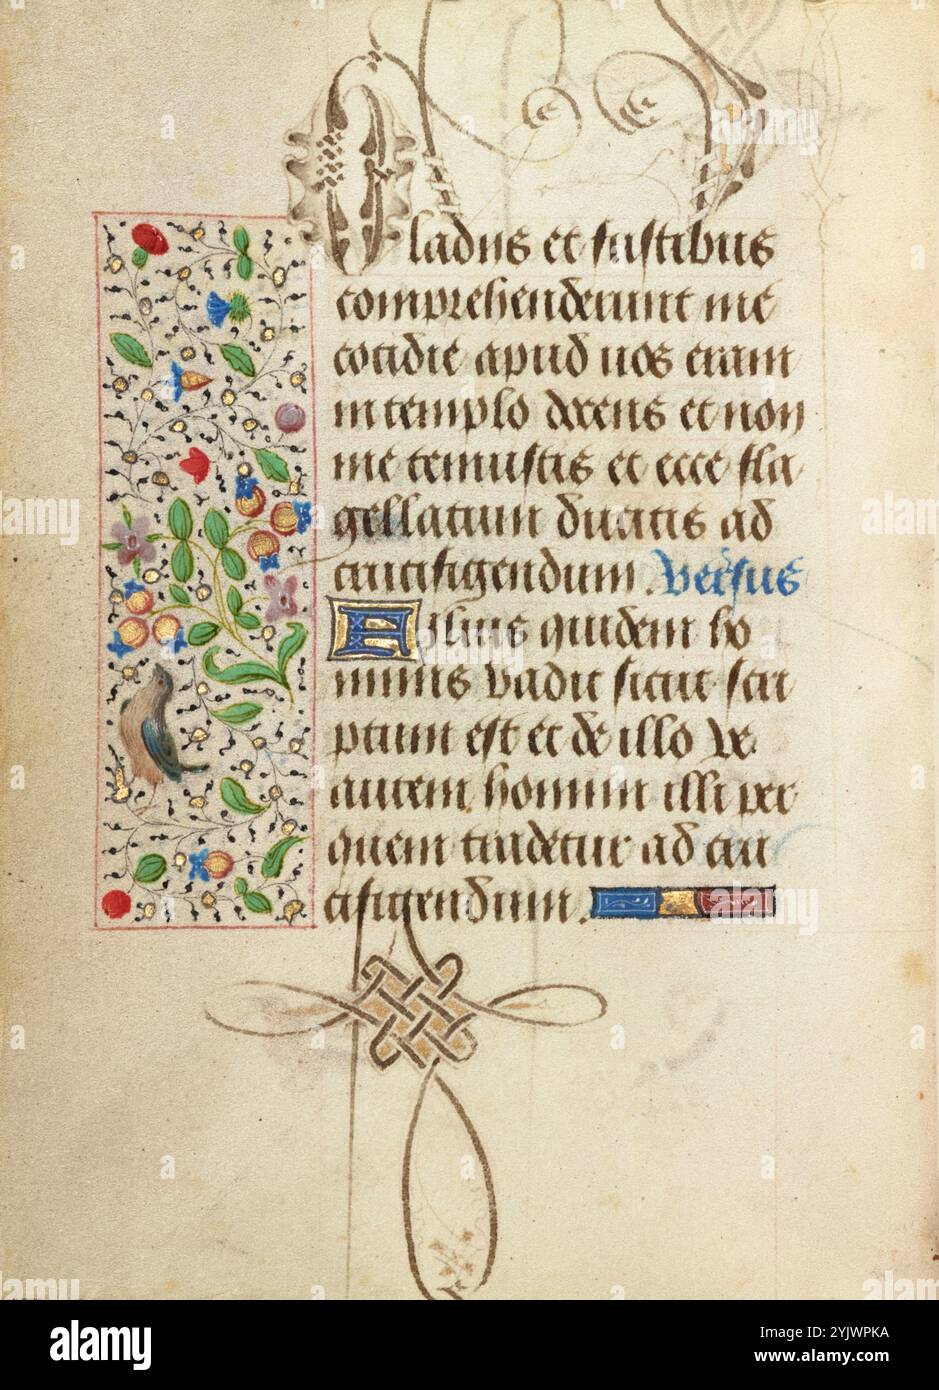 Gladiis et fustibus
comprehenderunt me
cotidie apud uos eram
in templo docens et non
me tenuistis et ecce fla
gellatum ducitis ad
crucifigendum. Versus
Filius quidem ho
minis vadit sicut scri
ptum est et de illo ve
autem homini illi per
quem tradetur ad cru
cifigendum.
alamy
Image ID: 2YJWPKA
www.alamy.com